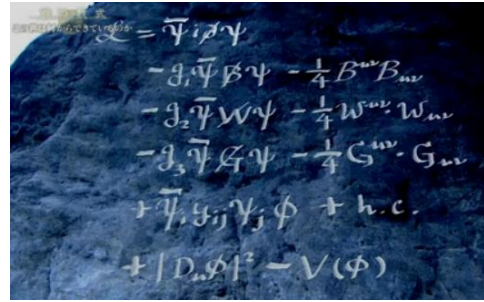 この世は何からできているのか
ℒ = ψ̄ i∂̸ ψ
- g₁ ψ̄ B̸ ψ - ¼ B^{μν} B_{μν}
- g₂ ψ̄ W̸ ψ - ¼ W^{μν} · W_{μν}
- g₃ ψ̄ G̸ ψ - ¼ G^{μν} · G_{μν}
+ ψ̄ᵢ yᵢⱼ ψⱼ ϕ + h.c.
+ |D_μ ϕ|² - V(ϕ)